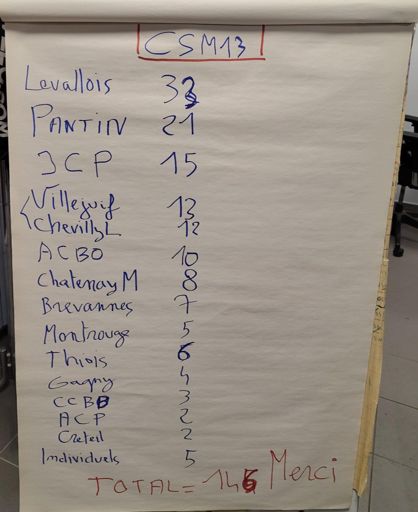 CSM13
Levallois 33
PANTIN 21
3CP 15
Villejuif 13
Chevilly L 12
ACBO 10
Chatenay M 8
Brevannes 7
Montrouge 5
Thiais 6
Gagny 4
CCBB 3
ACP 2
Creteil 2
Individuels 5
TOTAL = 146 Merci